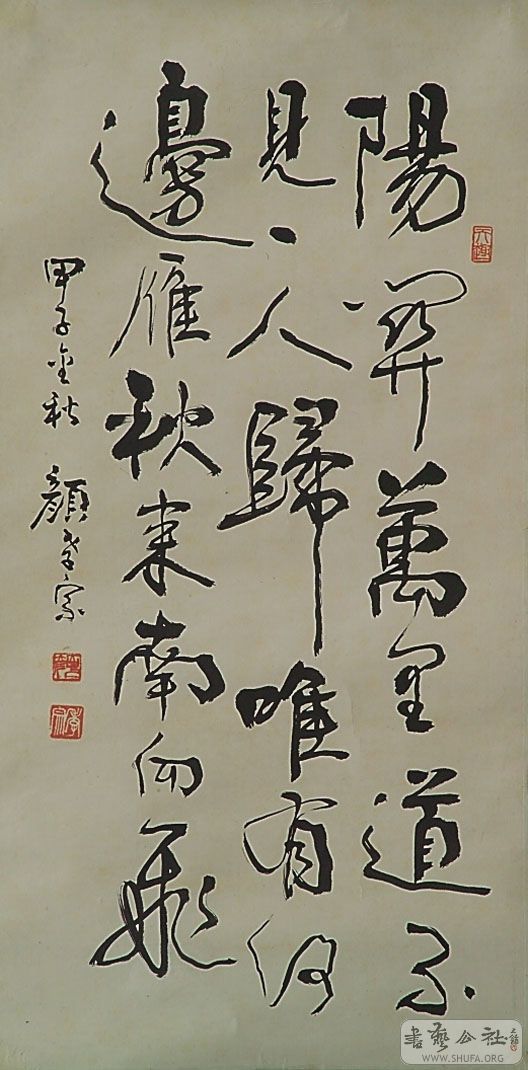 陽關萬里道不
見一人歸唯有河
邊雁秋來南向飛
甲子金秋 顏
書藝公社
WWW.SHUFA.ORG